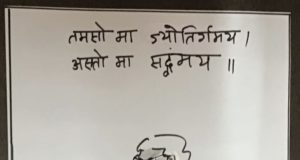 तमसो मा ज्योतिर्गमय ।
असतो मा सद्गंमय ॥